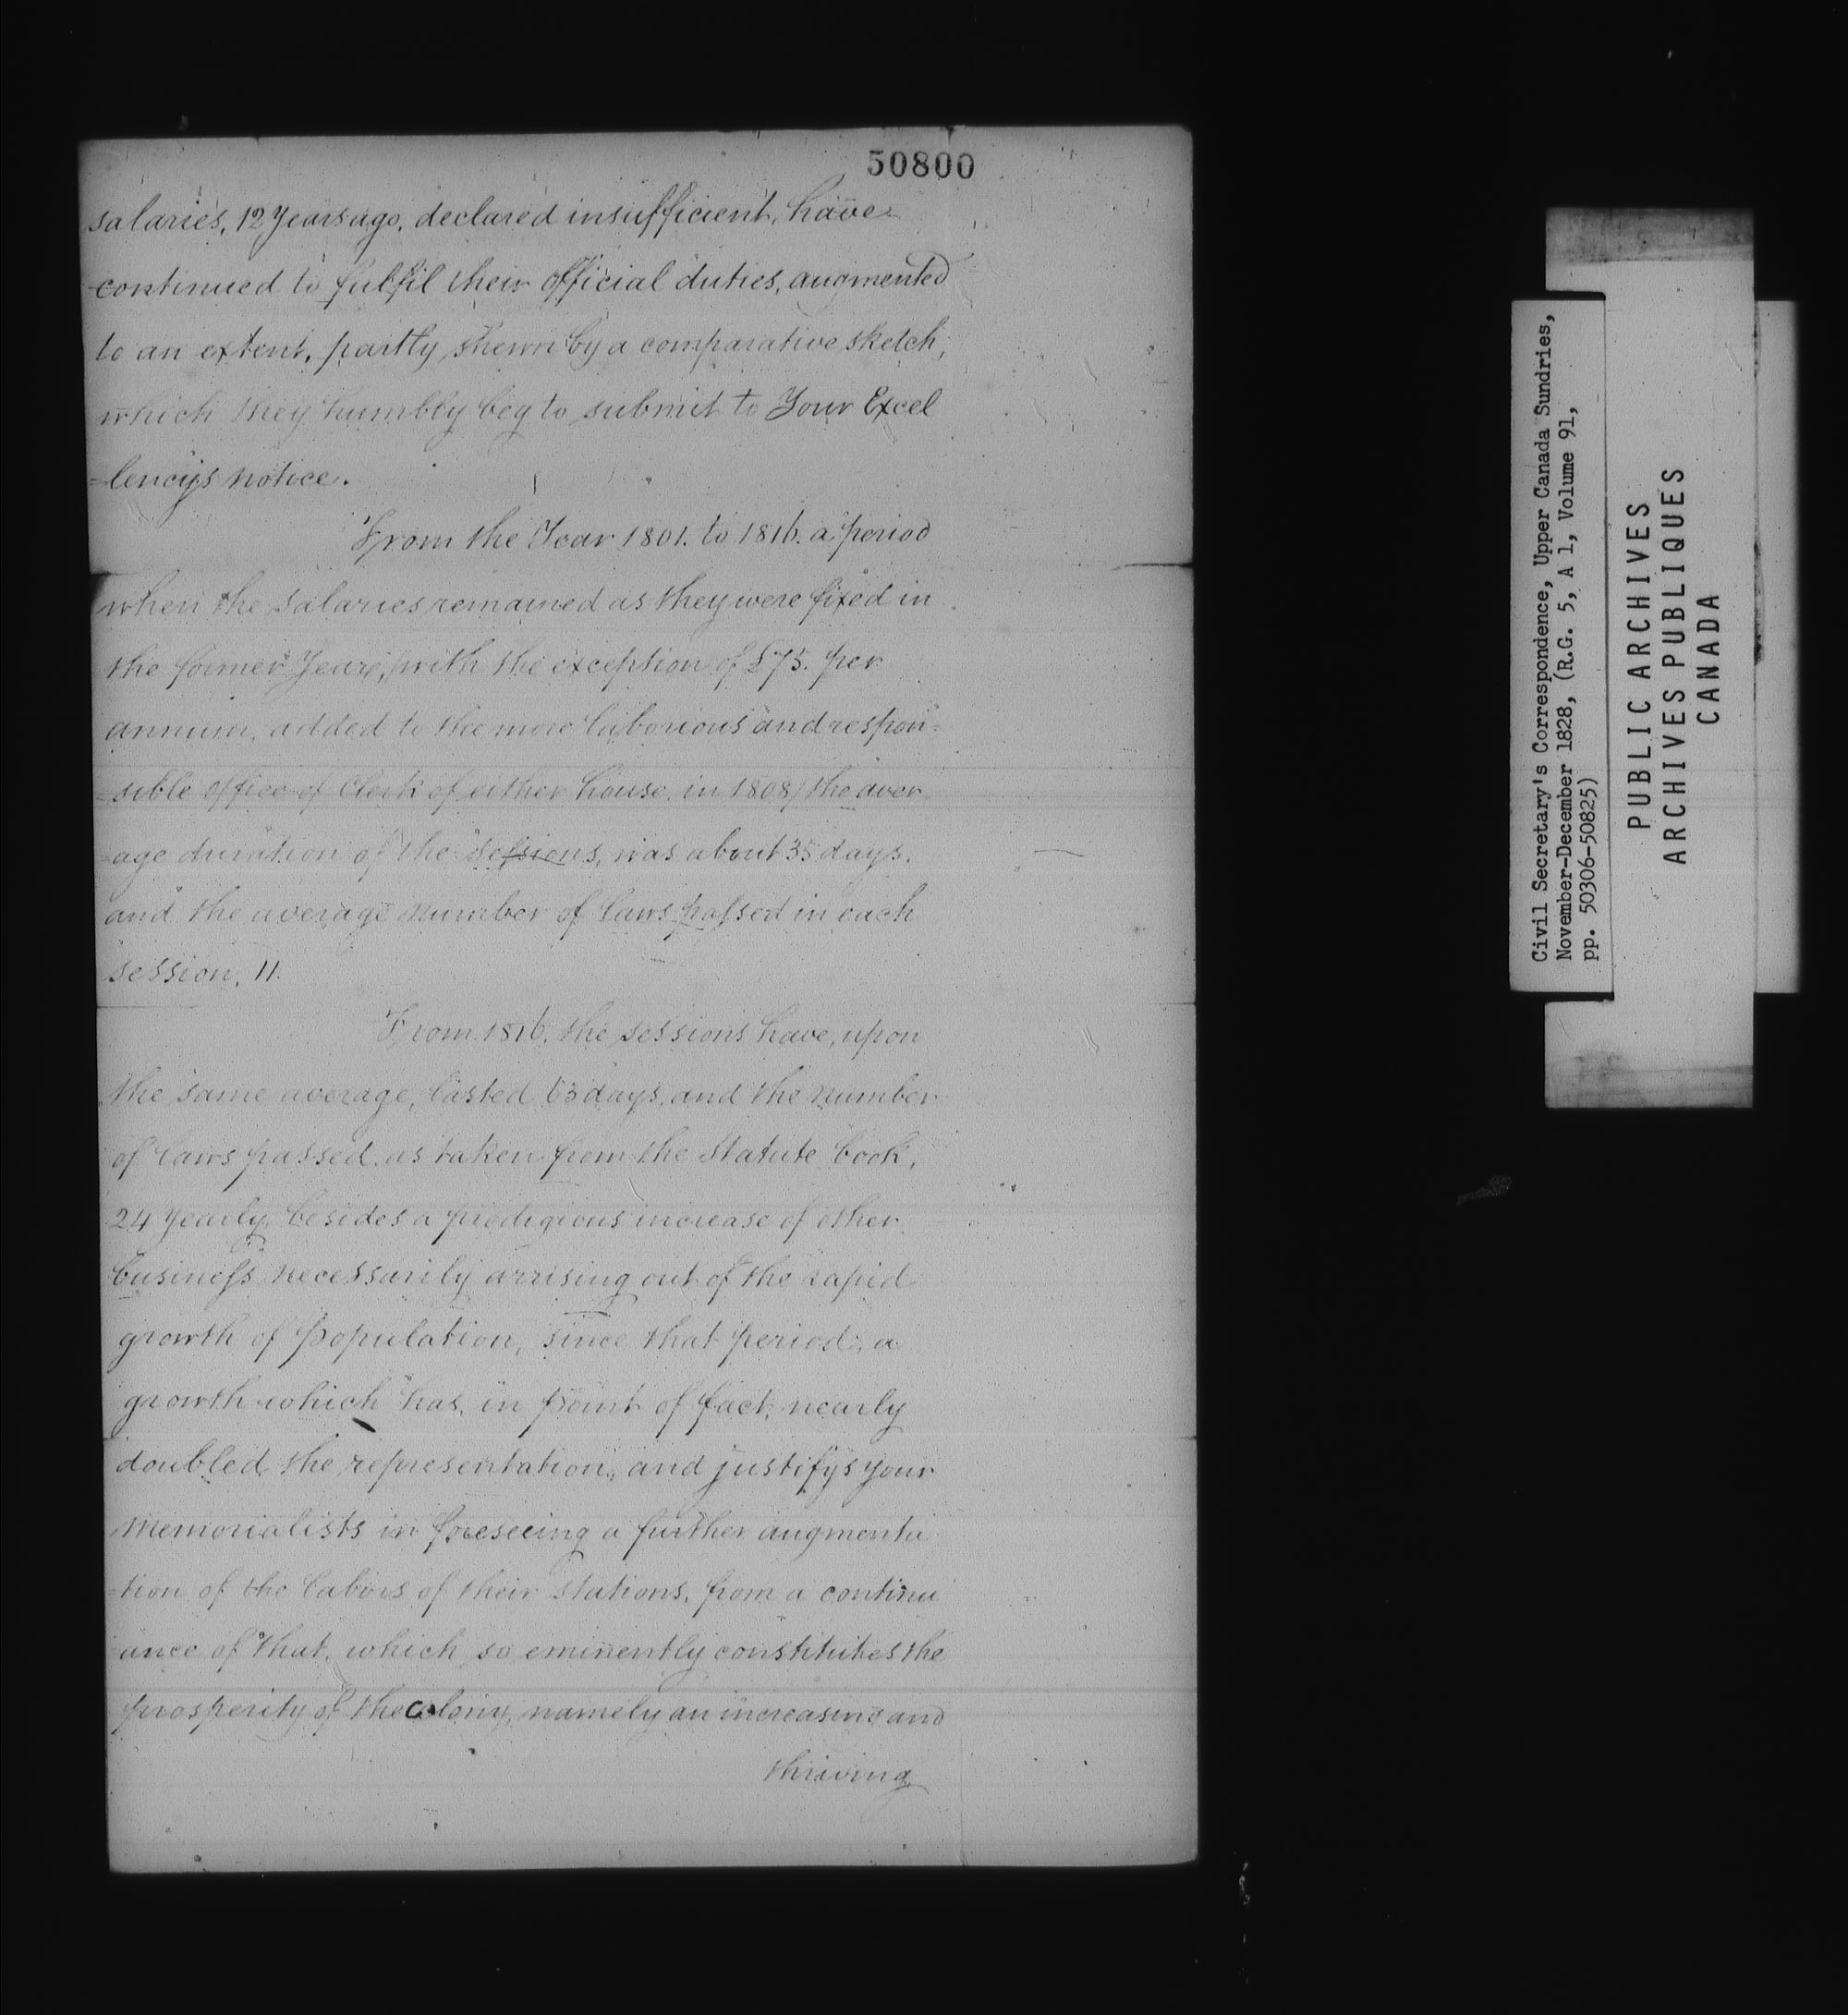 50800
salaries, 12 Years ago, declared insufficient, have
continued to fulfil their official duties, augmented
to an extent, partly shewn by a comparative sketch,
which they humbly beg to submit to Your Excel
=lencys notice.
From the Year 1801. to 1816. a period
when the salaries remained as they were fixed in
the former Year, with the exception of £75. per
annum, added to the more laborious and respon=
=sible office of Clerk of either house, in 1808/ the aver
=age duration of the sessions, was about 35 days,
and the average number of laws passed in each
session, 11.
From 1816, the sessions have, upon
the same average, lasted 63 days, and the number
of laws passed, as taken from the Statute book,
24 yearly, besides a prodigious increase of other
business necessarily arrising out of the rapid
growth of population, since that period, a
growth which has, in point of fact, nearly
doubled the representation, and justifys your
Memorialists in foreseeing a further augmenta
=tion of the labors of their stations, from a continu
=ance of that, which so eminently constitutes the
prosperity of the Colony, namely an increasing and
thriving
Civil Secretary's Correspondence, Upper Canada Sundries,
November-December 1828, (R.G. 5, A 1, Volume 91,
pp. 50306-50825)
PUBLIC ARCHIVES
ARCHIVES PUBLIQUES
CANADA